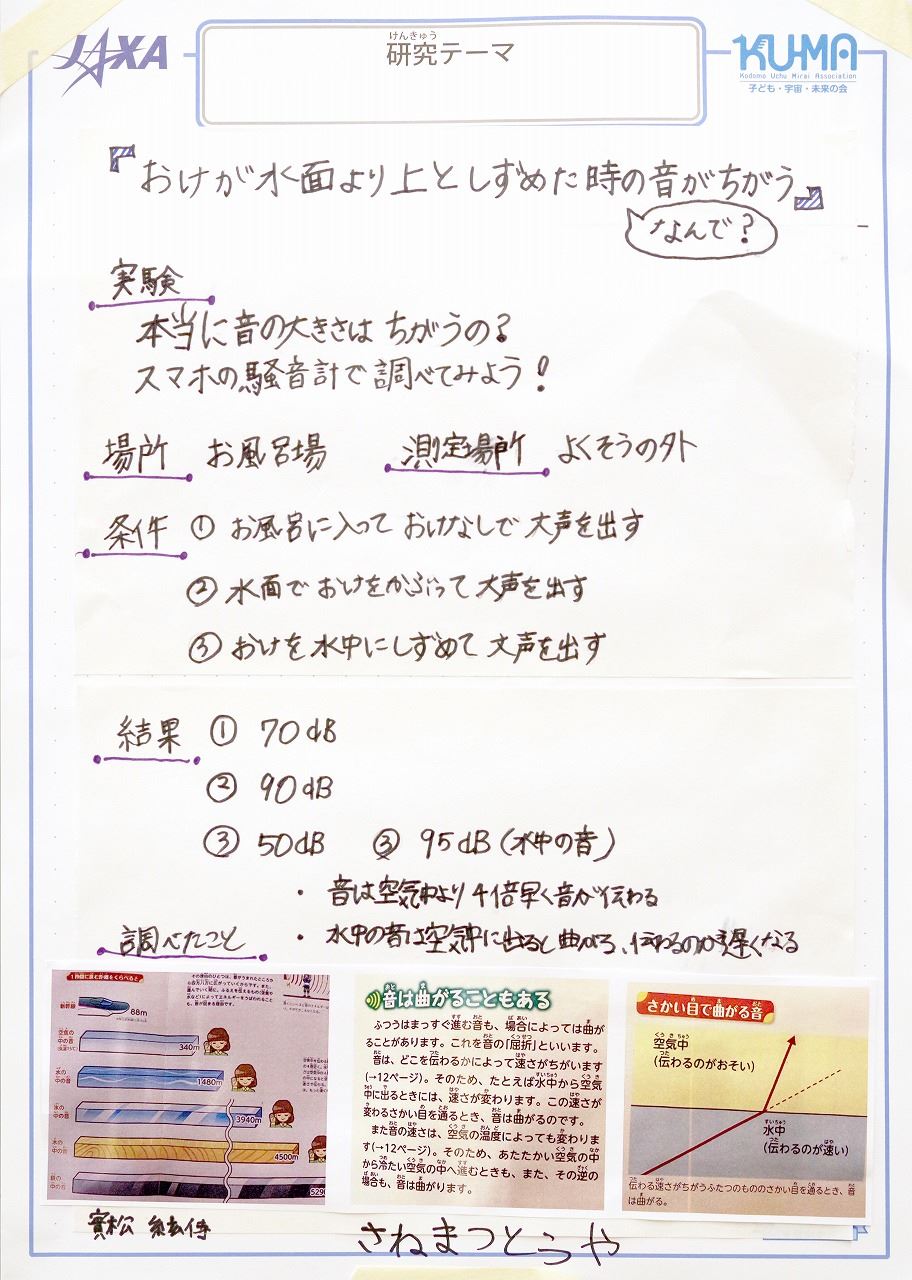 JAXA
けんきゅう
研究テーマ
KU-MA
Kodomo Uchu Mirai Association
子ども・宇宙・未来の会
『おけが水面より上としずめた時の音がちがう』
なんで?
実験
本当に音の大きさは ちがうの?
スマホの騒音計で調べてみよう!
場所 お風呂場 測定場所 よくそうの外
条件 ① お風呂に入って おけなしで 大声を出す
② 水面で おけをかぶって 大声を出す
③ おけを 水中にしずめて 大声を出す
結果 ① 70dB
② 90dB
③ 50dB ③ 95dB (水中の音)
・ 音は空気中より 4倍早く音が伝わる
調べたこと ・ 水中の音は空気中に出ると曲がる、伝わるのが遅くなる
1秒間に進む距離をくらべると
新幹線
88m
空気の中の音
340m
水の中の音
1480m
氷の中の音
3940m
木の中の音
4500m
音は曲がることもある
ふつうはまっすぐ進む音も、場合によっては曲が
ることがあります。これを音の「屈折」といいます。
音は、どこを伝わるかによって速さがちがいます
(→12ページ)。そのため、たとえば水中から空気
中に出るときには、速さが変わります。この速さが
変わるさかい目を通るとき、音は曲がるのです。
また音の速さは、空気の温度によっても変わりま
す(→12ページ)。そのため、あたたかい空気の中
から冷たい空気の中へ進むときも、また、その逆の
場合も、音は曲がります。
さかい目で曲がる音
空気中
(伝わるのがおそい)
水中
(伝わるのが速い)
伝わる速さがちがうふたつのもののさかい目を通るとき、音
は曲がる。
實松
さねまつとうや